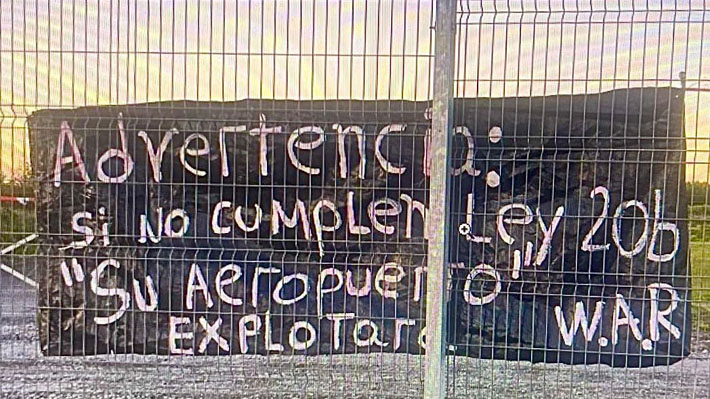 Advertencia:
Si NO CUMPLEN Ley 20b
"SU AEROPUERTO"
EXPLOTARA. W.A.R